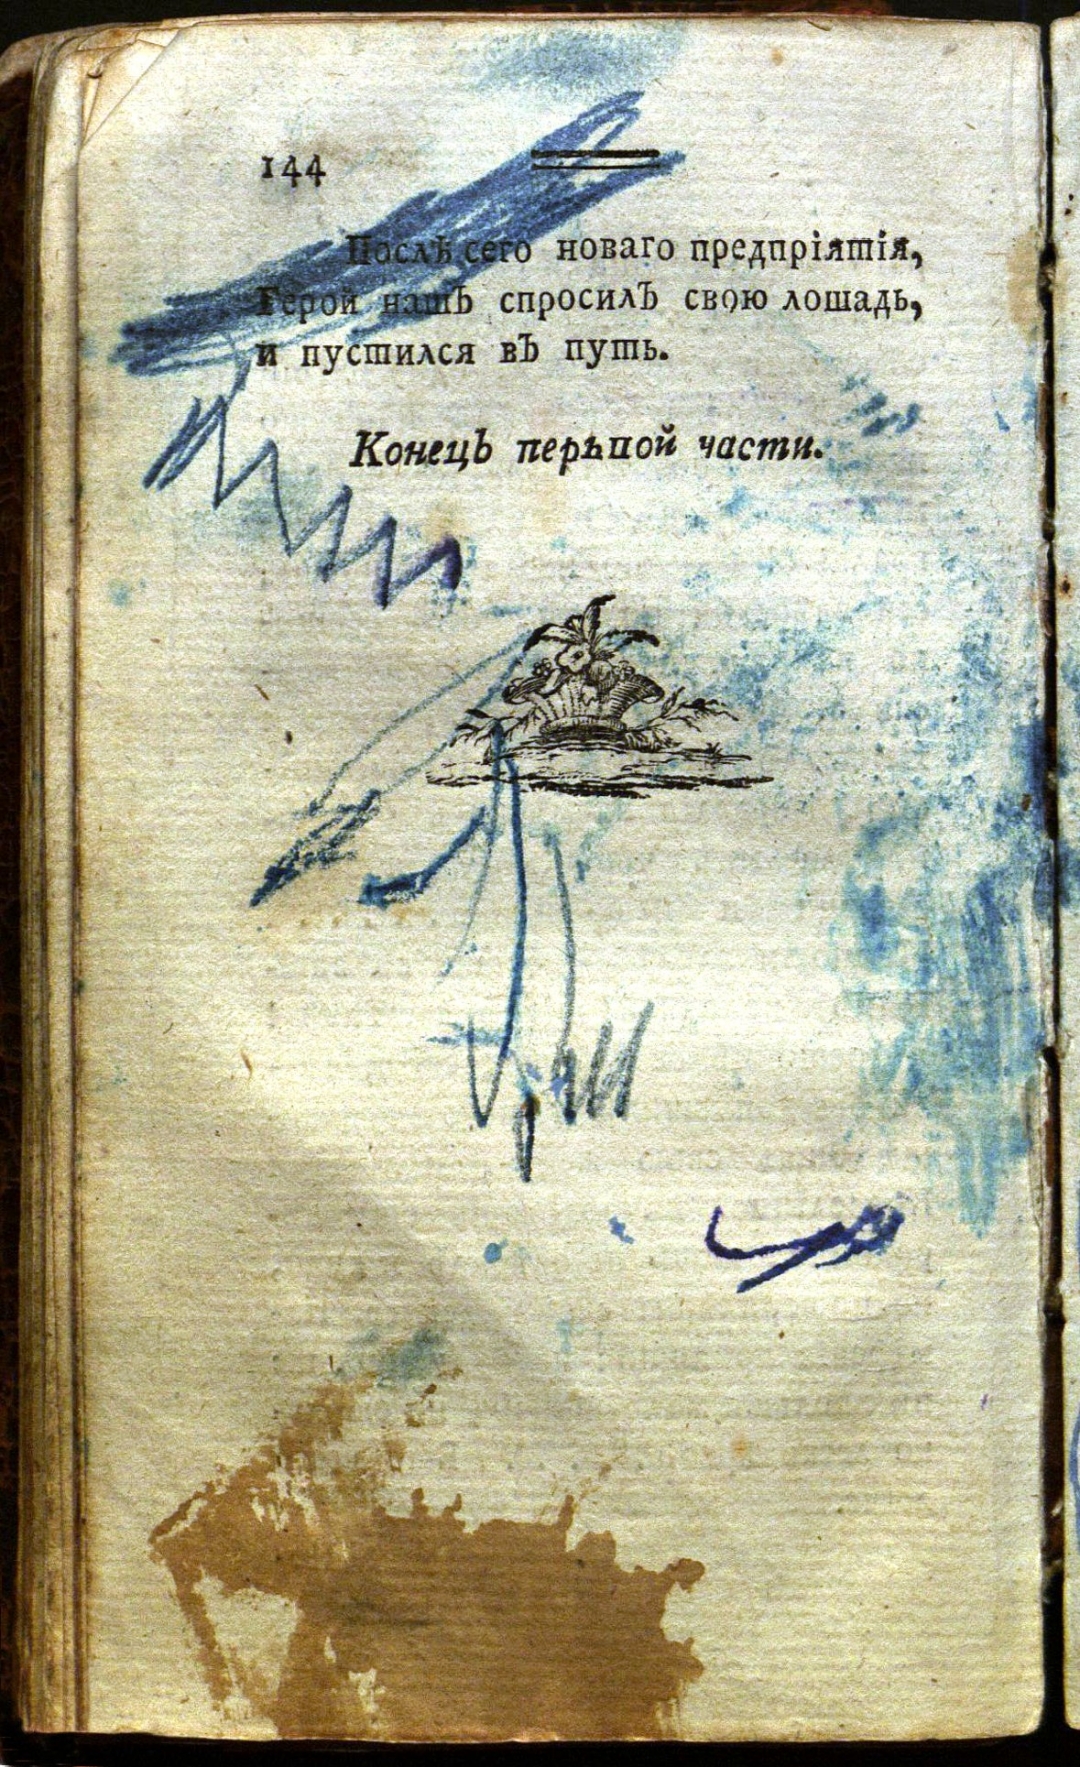 144
Послѣ сего новаго предпріятія,
Герой нашъ спросилъ свою лошадь,
и пустился въ путь.
Конецъ перьвой части.